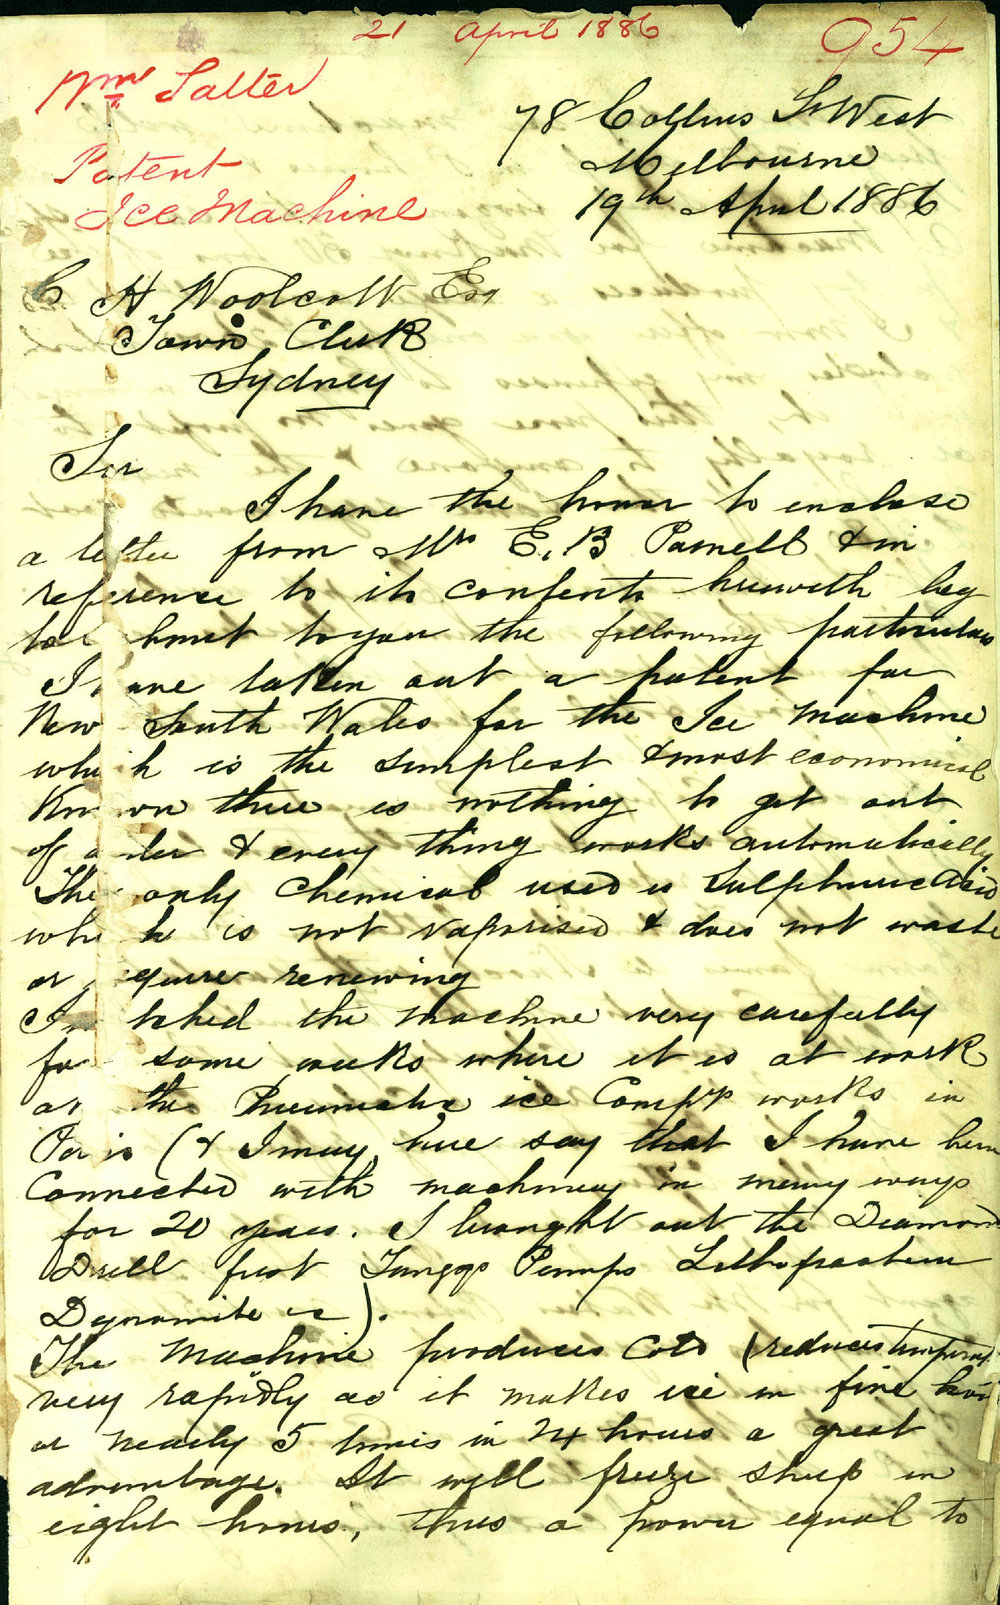 21 April 1886
954
Wm Salter
Patent
Ice Machine
78 Collins St West
Melbourne
19th April 1886
C H Woolcott Esq
Town Clerk
Sydney
Sir
I have the honor to enclose
a letter from Mr E. B Parnell & in
reference to its contents herewith beg
to submit to you the following particulars
I have taken out a patent for
New South Wales for the Ice Machine
which is the simplest & most economical
Known there is nothing to get out
of order & every thing works automatically
The only Chemical used is Sulphuric Acid
which is not vaporised & does not waste
or require renewing
I watched the machine very carefully
for some weeks where it is at work
at the Pneumatic ice Compy works in
Paris (& I may here say that I have been
Connected with machinery in many ways
for 20 years. I brought out the Diamond
Drill first Tangye Pumps Lithofracteur
Dynamite &c).
The Machine produces Cold (reduces temperat
very rapidly as it makes ice in five hours
or nearly 5 times in 24 hours a great
advantage. It will freeze sheep in
eight hours, thus a power equal to